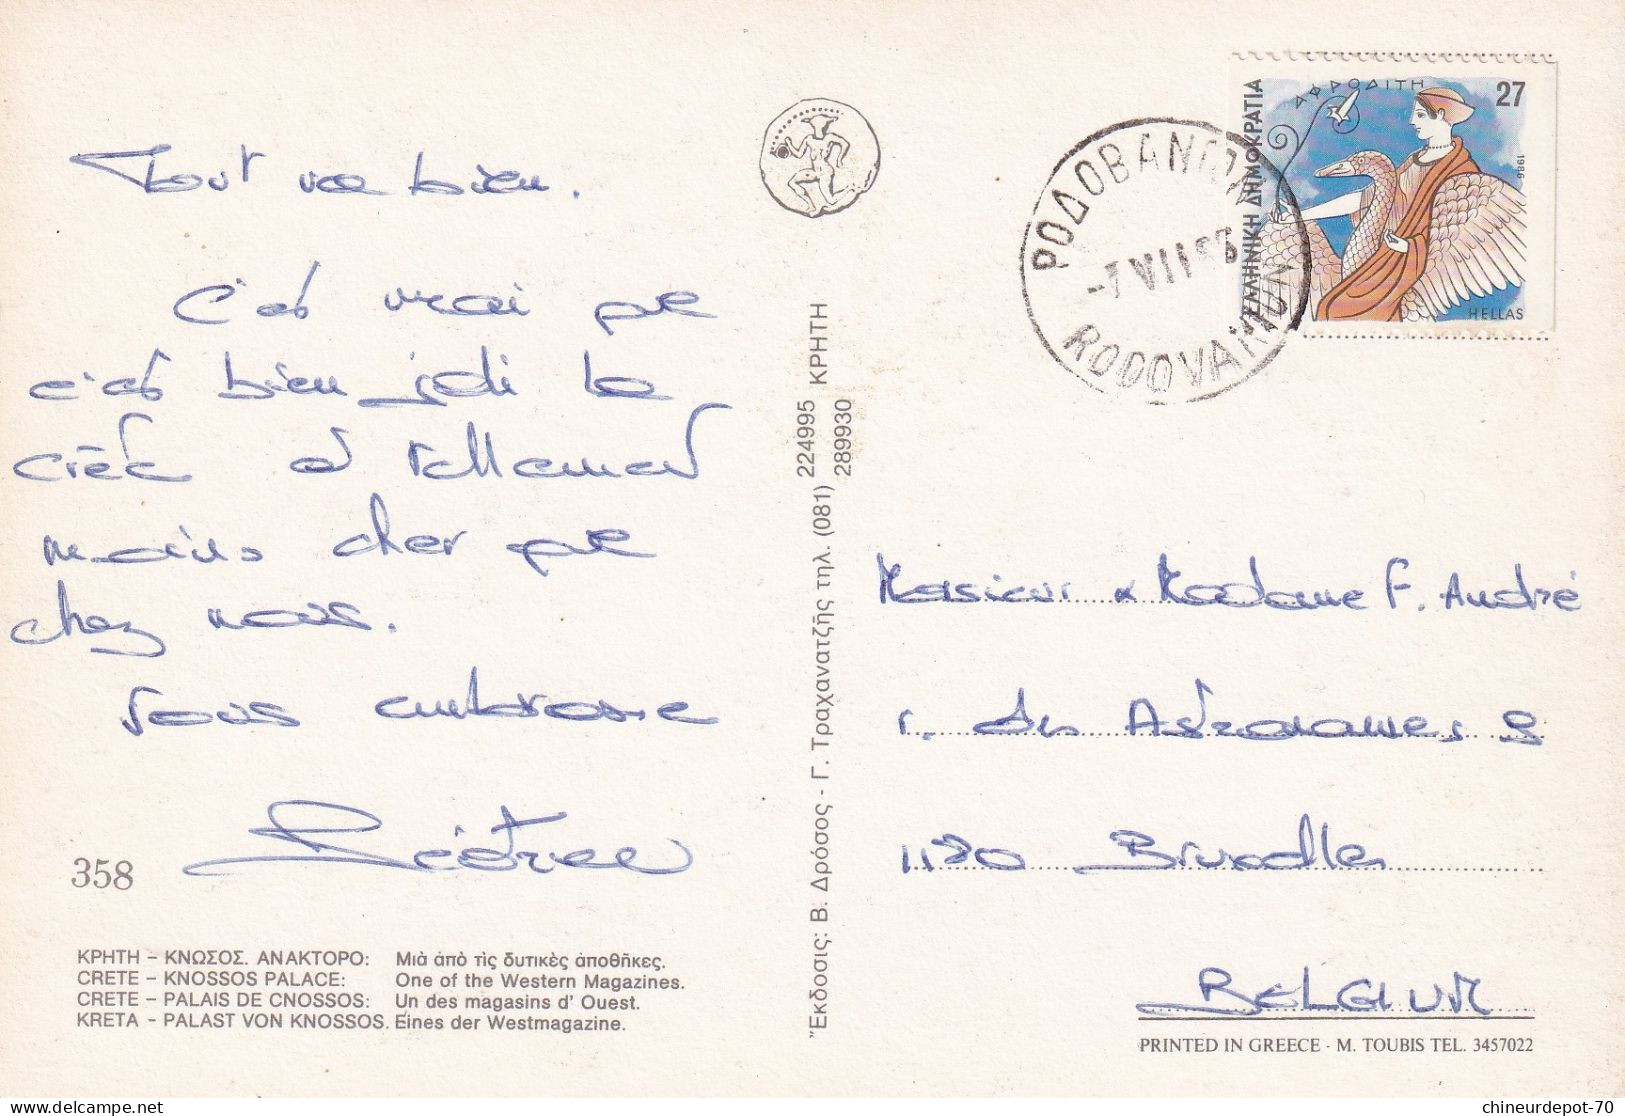 Tout va bien.
C'est vrai que
c'est bien joli la
Crête et vraiment
moins cher que
chez nous.
Vous embrasse
358
ΚΡΗΤΗ – ΚΝΩΣΟΣ. ΑΝΑΚΤΟΡΟ: Μιὰ ἀπὸ τὶς δυτικὲς ἀποθῆκες.
CRETE – KNOSSOS PALACE: One of the Western Magazines.
CRETE – PALAIS DE CNOSSOS: Un des magasins d' Ouest.
KRETA – PALAST VON KNOSSOS. Eines der Westmagazine.
Ἔκδοσις: Β. Δρόσος - Γ. Τραχανατζῆς τηλ. (081) 224995 ΚΡΗΤΗ
289930
ΡΟΔΟΒΑΝΙΟΝ
-7 VII
RODOVANION
ΕΛΛΗΝΙΚΗ ΔΗΜΟΚΡΑΤΙΑ
ΑΦΡΟΔΙΤΗ
27
1986
HELLAS
Monsieur & Madame F. André
r. des Astronomes 9
1180 Bruxelles
BELGIUM
PRINTED IN GREECE - M. TOUBIS TEL. 3457022
chineurdepot-70